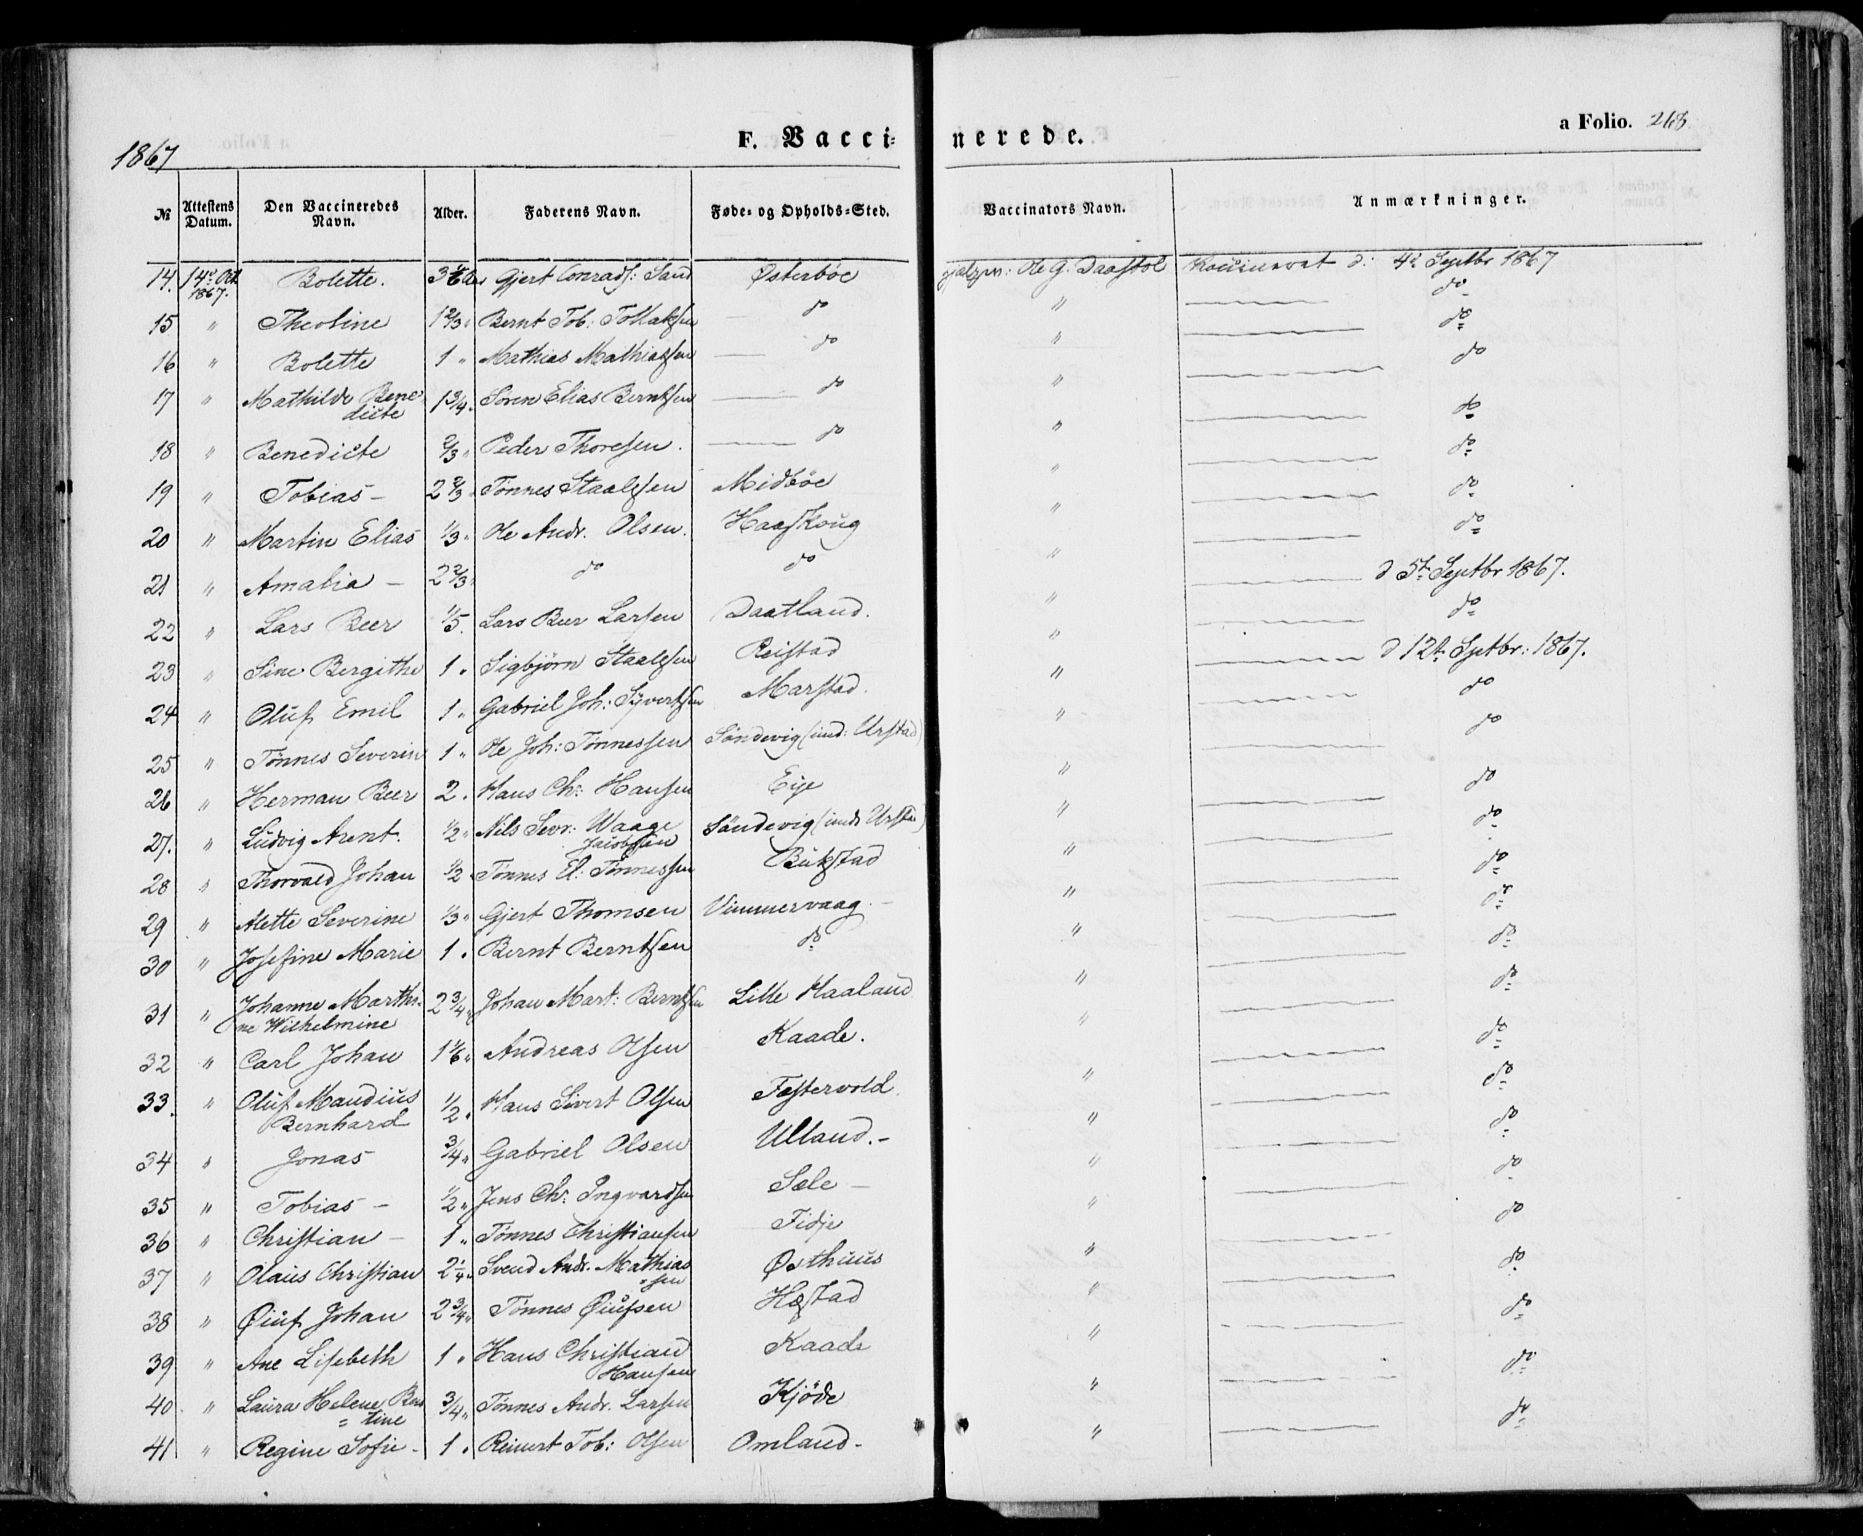 1867
F. Vacci-nerede.
a Folio. 268.
№ | Attestens Datum. | Den Vaccineredes Navn. | Alder. | Faderens Navn. | Føde- og Opholds-Sted. | Vaccinators Navn. | Anmærkninger.
14. | 14de Oct. 1867. | Bolette. | 3 1/6 | Gjert Conrads: Sand | Østerbøe | Ole G. Daastøl | d: 4de Septbr 1867
15 | " | Theoline | 1 2/3 " | Bernt Tob: Tollaksen | do | " | do
16 | " | Bolette | 1 " | Mathias Mathiassen | do | " | do
17 | " | Mathilde Benedicte | 1 3/4 " | Søren Elias Berntsen | do | " | do
18 | " | Benedicte | 2/3 " | Peder Thoresen. | do | " | do
19 | " | Tobias - | 2 2/3 | Tønnes Staalesen | Midbøe | " | do
20 | " | Martin Elias | 1/3 " | Ole Andr. Olsen. | Haaskoug | " | do
21 | " | Amalia - | 2 2/3 | do | do | " | d 5te Septbr 1867.
22 | " | Lars Beer | 1/5. | Lars Beer Larsen | Daatland. | " | do
23 | " | Sine Bergithe | 1 " | Sigbjørn Staalesen | Reistad | " | d 12te Septbr: 1867.
24 | " | Oluf Emil | 1 " | Gabriel Joh: Syvertsen | Marstad. | " | do
25 | " | Tønnes Severin | 1 " | Ole Joh: Tønnessen | Søndevig (und: Urstad) | " | do
26 | " | Herman Beer | 2. | Hans Ch: Hansen | Eije | " | do
27. | " | Ludvig Arent. | 1/2 " | Nils Sevr: Waage Jacobsen | Søndevig (und: Urstad) | " | do
28 | " | Thorvald Johan | 1/2 | Tønnes El: Tønnessen | Bukstad | " | do
29 | " | Alette Severine | 1/3 " | Gjert Thomsen | Vimmervaag. - | " | do
30 | " | Josefine Marie | 1. | Bernt Berntsen | do | " | do
31 | " | Johanne Marthine Wilhelmine | 2 3/4 " | Johan Mart: Berntsen | Lille Haaland | " | do
32 | " | Carl Johan | 1 1/6 " | Andreas Olsen | Kaade. | " | do
33. | " | Oluf Maudius Bernhard | 1/2 " | Hans Sivert Olsen | Festervold. | " | do
34 | " | Jonas | 3/4 " | Gabriel Olsen | Ulland. - | " | do
35 | " | Tobias - | 1/2 " | Jens Ch: Ingvardsen | Sele - | " | do
36 | " | Christian - | 1 " | Tønnes Christiansen | Fidje | " | do
37 | " | Olaus Christian | 2 1/4 " | Svend Andr. Mathiassen | Østhuus | " | do
38 | " | Øiuf Johan | 2 3/4 " | Tønnes Øiufsen | Hæstad | " | do
39 | " | Ane Lisebeth | 1 " | Hans Christian Hansen | Kaade | " | do
40 | " | Laura Helene Bentine | 3/4 " | Tønnes Andr. Larsen | Kjøde | " | do
41 | " | Regine Sofie - | 1. | Reinert Tob: Olsen | Omland - | "